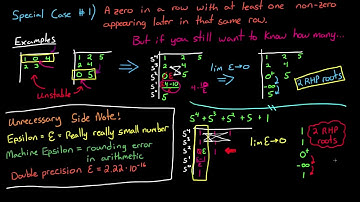 Special Case #1) A zero in a row with at least one non-zero
appearing later in that same row.
But if you still want to know how many...
Examples
1 0 4
2 3
Unstable
1 2 5
2 4
0 5
lim ε→0
1 2 5
2 4
0⁺ 5
-∞
5
2 RHP roots
Unnecessary Side Note!
Epsilon = ε = Really really small number
Machine Epsilon = rounding error
in arithmetic
Double precision ε = 2.22·10⁻¹⁶
s⁴ + s³ + s² + s + 1
s⁴
s³
s²
s¹
s⁰
lim ε→0
1
1
0⁺
-∞
1
2 RHP
roots